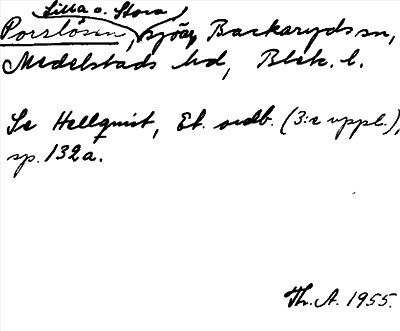 Lilla o. Stora
Porslösen, sjöar, Backaryds sn,
Medelstads hd, Blek. l.
Se Hellquist, Et. ordb. (3:e uppl.),
sp. 132a.
Th. A. 1955.